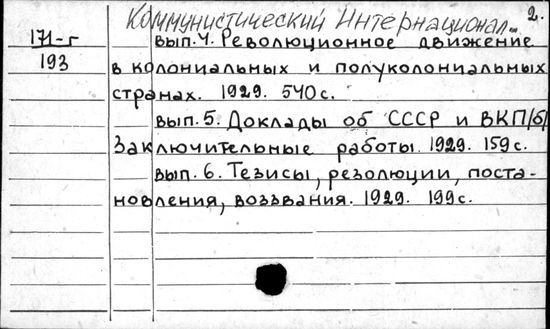 Коммунистический Интернационал... 2.
171-г
193
вып.4. Революционное движение
в колониальных и полуколониальных
странах. 1929. 540 с.
вып.5. Доклады об СССР и ВКП/б/
Заключительные работы. 1929. 159 с.
вып. 6. Тезисы, резолюции, поста-
новления, воззвания. 1929. 199 с.